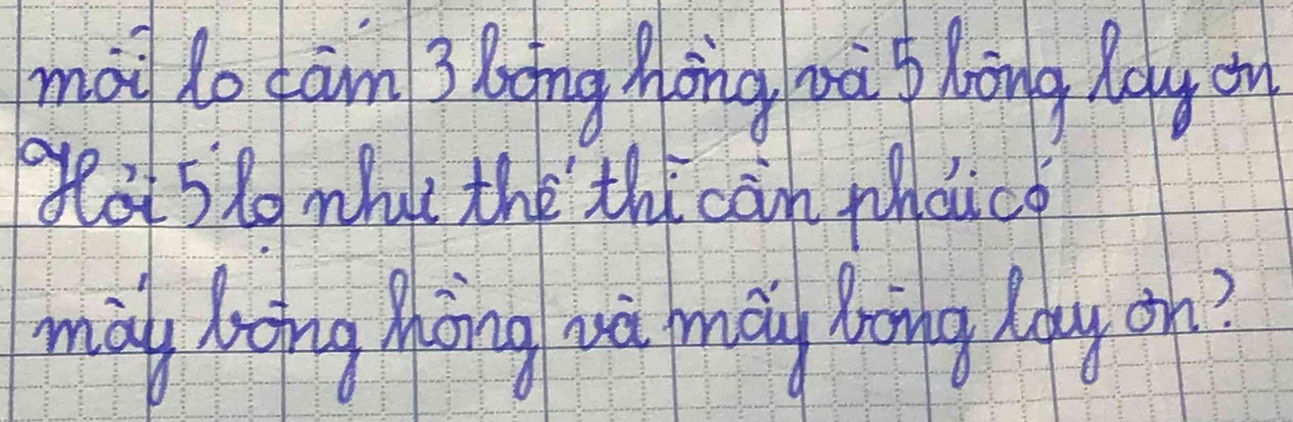 mỗi lọ cắm 3 bông hồng và 5 bông lay ơn
Hỏi 5 lọ như thế thì cần phải có
mấy bông hồng và mấy bông lay ơn?